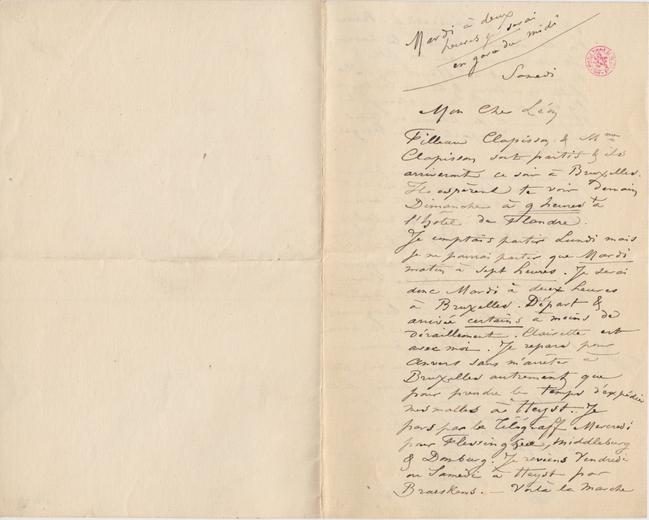 Mardi à deux
heures je serai
en gare du midi
Samedi
Mon Cher Léon
Filleau Clapisson & Mme
Clapisson sont partis & ils
arriveront ce soir à Bruxelles.
Ils espèrent te voir demain
Dimanche à 9 heures à
l'hôtel de Flandre.
Je comptais partir Lundi mais
je ne pourrai partir que Mardi
matin à sept heures. Je serai
donc Mardi à deux heures
à Bruxelles. Départ &
arrivée certains à moins de
déraillement. Clairette est
avec moi. Je repars pour
Anvers sans m'arrêter à
Bruxelles autrement que
pour prendre le temps d'expédier
mes malles à Heyst. Je
pars par le Télégraff Mercredi
pour Flessingue, Middleburg
& Domburg. Je reviens Vendredi
ou Samedi à Heyst par
Braeskens. — Voilà la marche